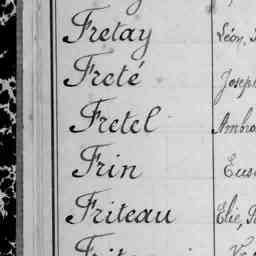 Fretay Léon,
Freté Joseph
Fretel Ambro
Frin Eus
Friteau Elie,